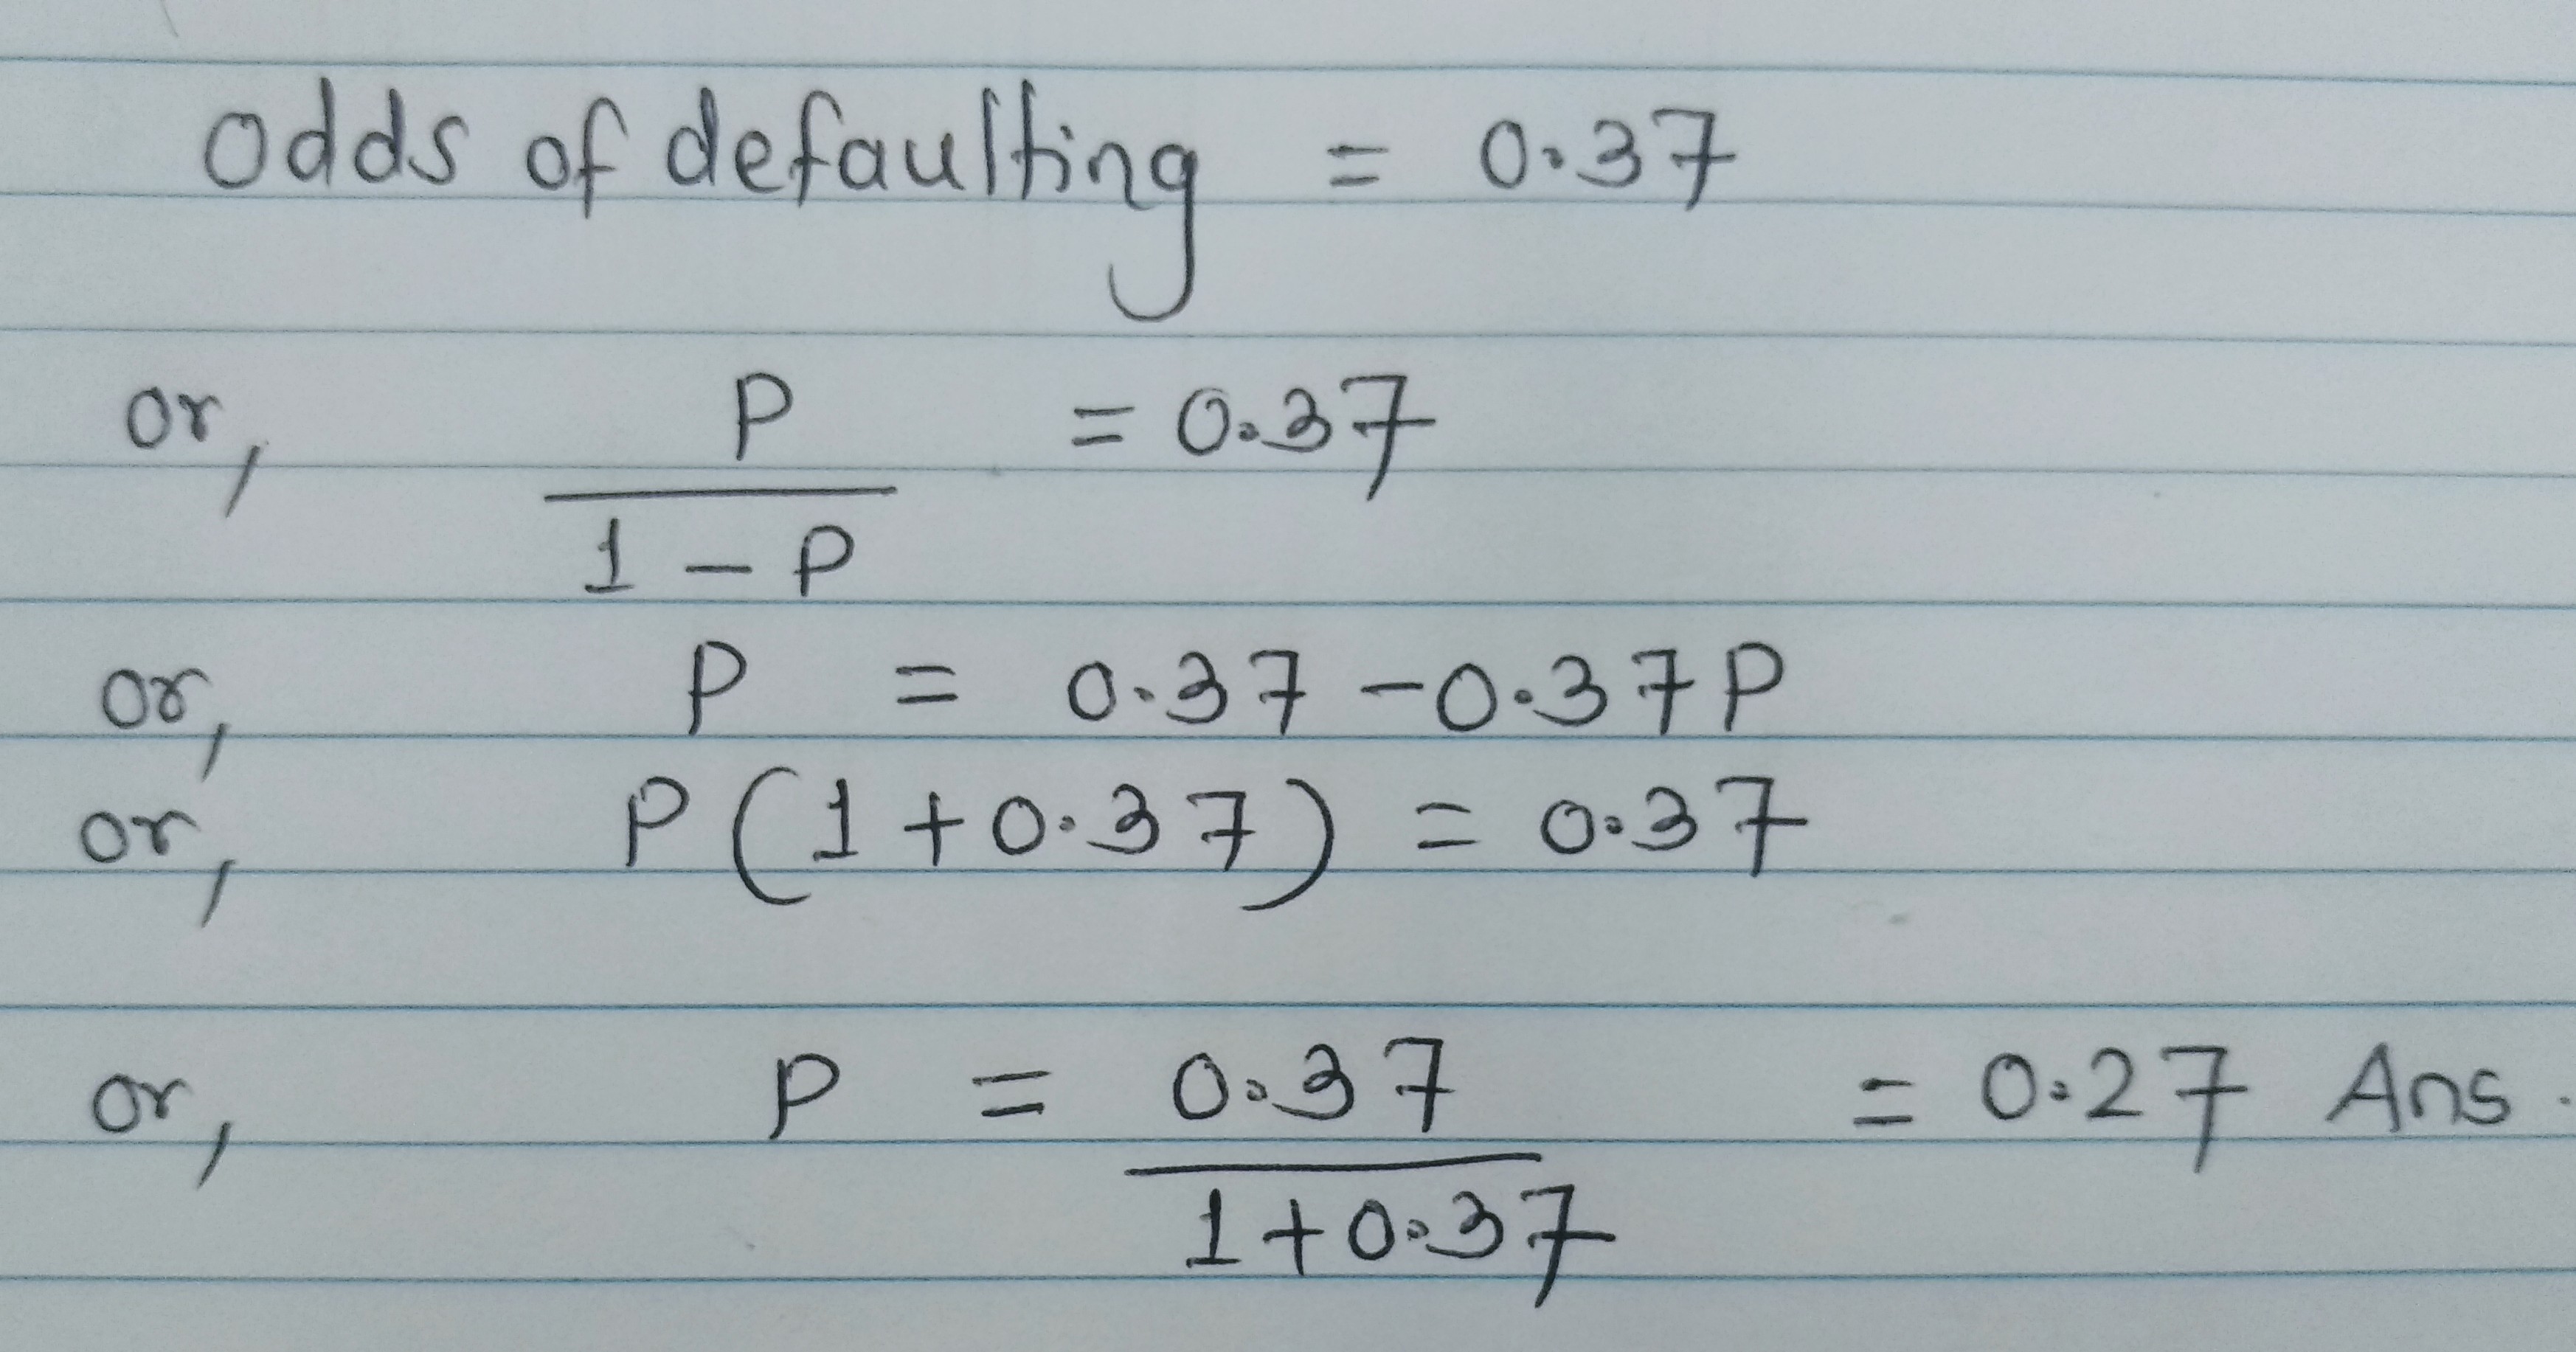 Odds of defaulting = 0.37
or, P / 1 - P = 0.37
or, P = 0.37 - 0.37 P
or, P (1 + 0.37) = 0.37
or, P = 0.37 / 1 + 0.37 = 0.27 Ans.